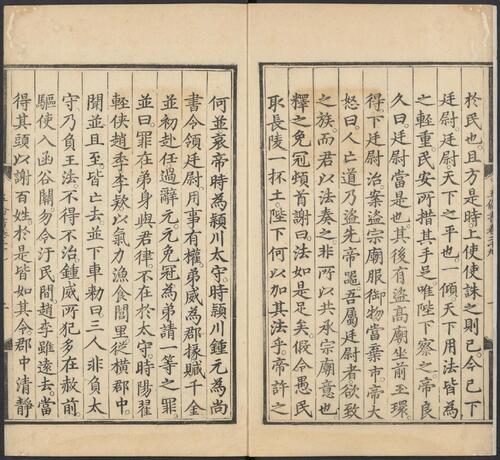 於民也。且方是時上使使誅之則已。今已下
廷尉。廷尉天下之平也。一傾天下用法皆為
之輕重。民安所措其手足。唯陛下察之。帝良
久曰。廷尉當是也。其後有盜高廟坐前玉環。
得。下廷尉治。案盜宗廟服御物當棄市。帝大
怒曰。人亡道。乃盜先帝噐。吾屬廷尉者。欲致
之族。而君以法奏之。非所以共承宗廟意也。
釋之免冠頓首謝曰。法如是足矣。假令愚民
取長陵一抔土。陛下何以加其法乎。帝許之
何並哀帝時為潁川太守。時潁川鍾元為尚
書令。領廷尉。用事有權。弟威為郡掾。贓千金。
並初赴任過辭元。元免冠為弟請一等之罪。
並曰。罪在弟身與君律。不在於太守。時陽翟
輕俠趙季李欵以氣力漁食閭里。從橫郡中。
聞並且至。皆亡去。並下車勑曰。三人非負太
守。乃負王法。不得不治。鍾威所犯多在赦前。
驅使入函谷關。勿令汙民間。趙李雖遠去。當
得其頭以謝百姓。於是皆如其令。郡中清靜